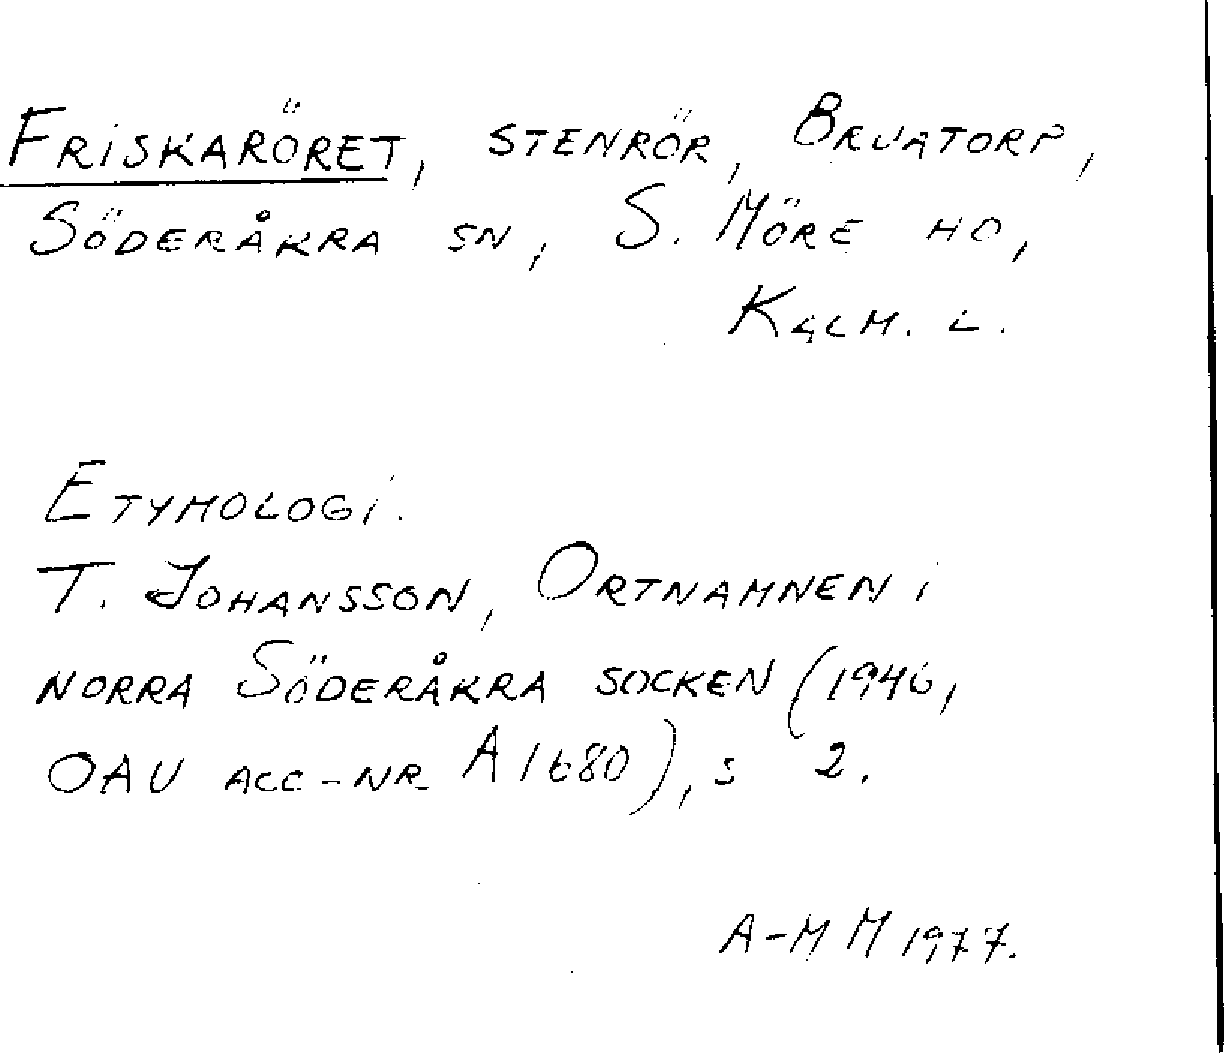 FRISKARÖRET, STENRÖR, BRUATORP,
SÖDERÅKRA SN, S. MÖRE HD,
KALM. L.
ETYMOLOGI.
T. JOHANSSON, ORTNAMNEN i
NORRA SÖDERÅKRA SOCKEN (1946,
OAU ACC-NR A1680), s 2.
A-M M 1977.